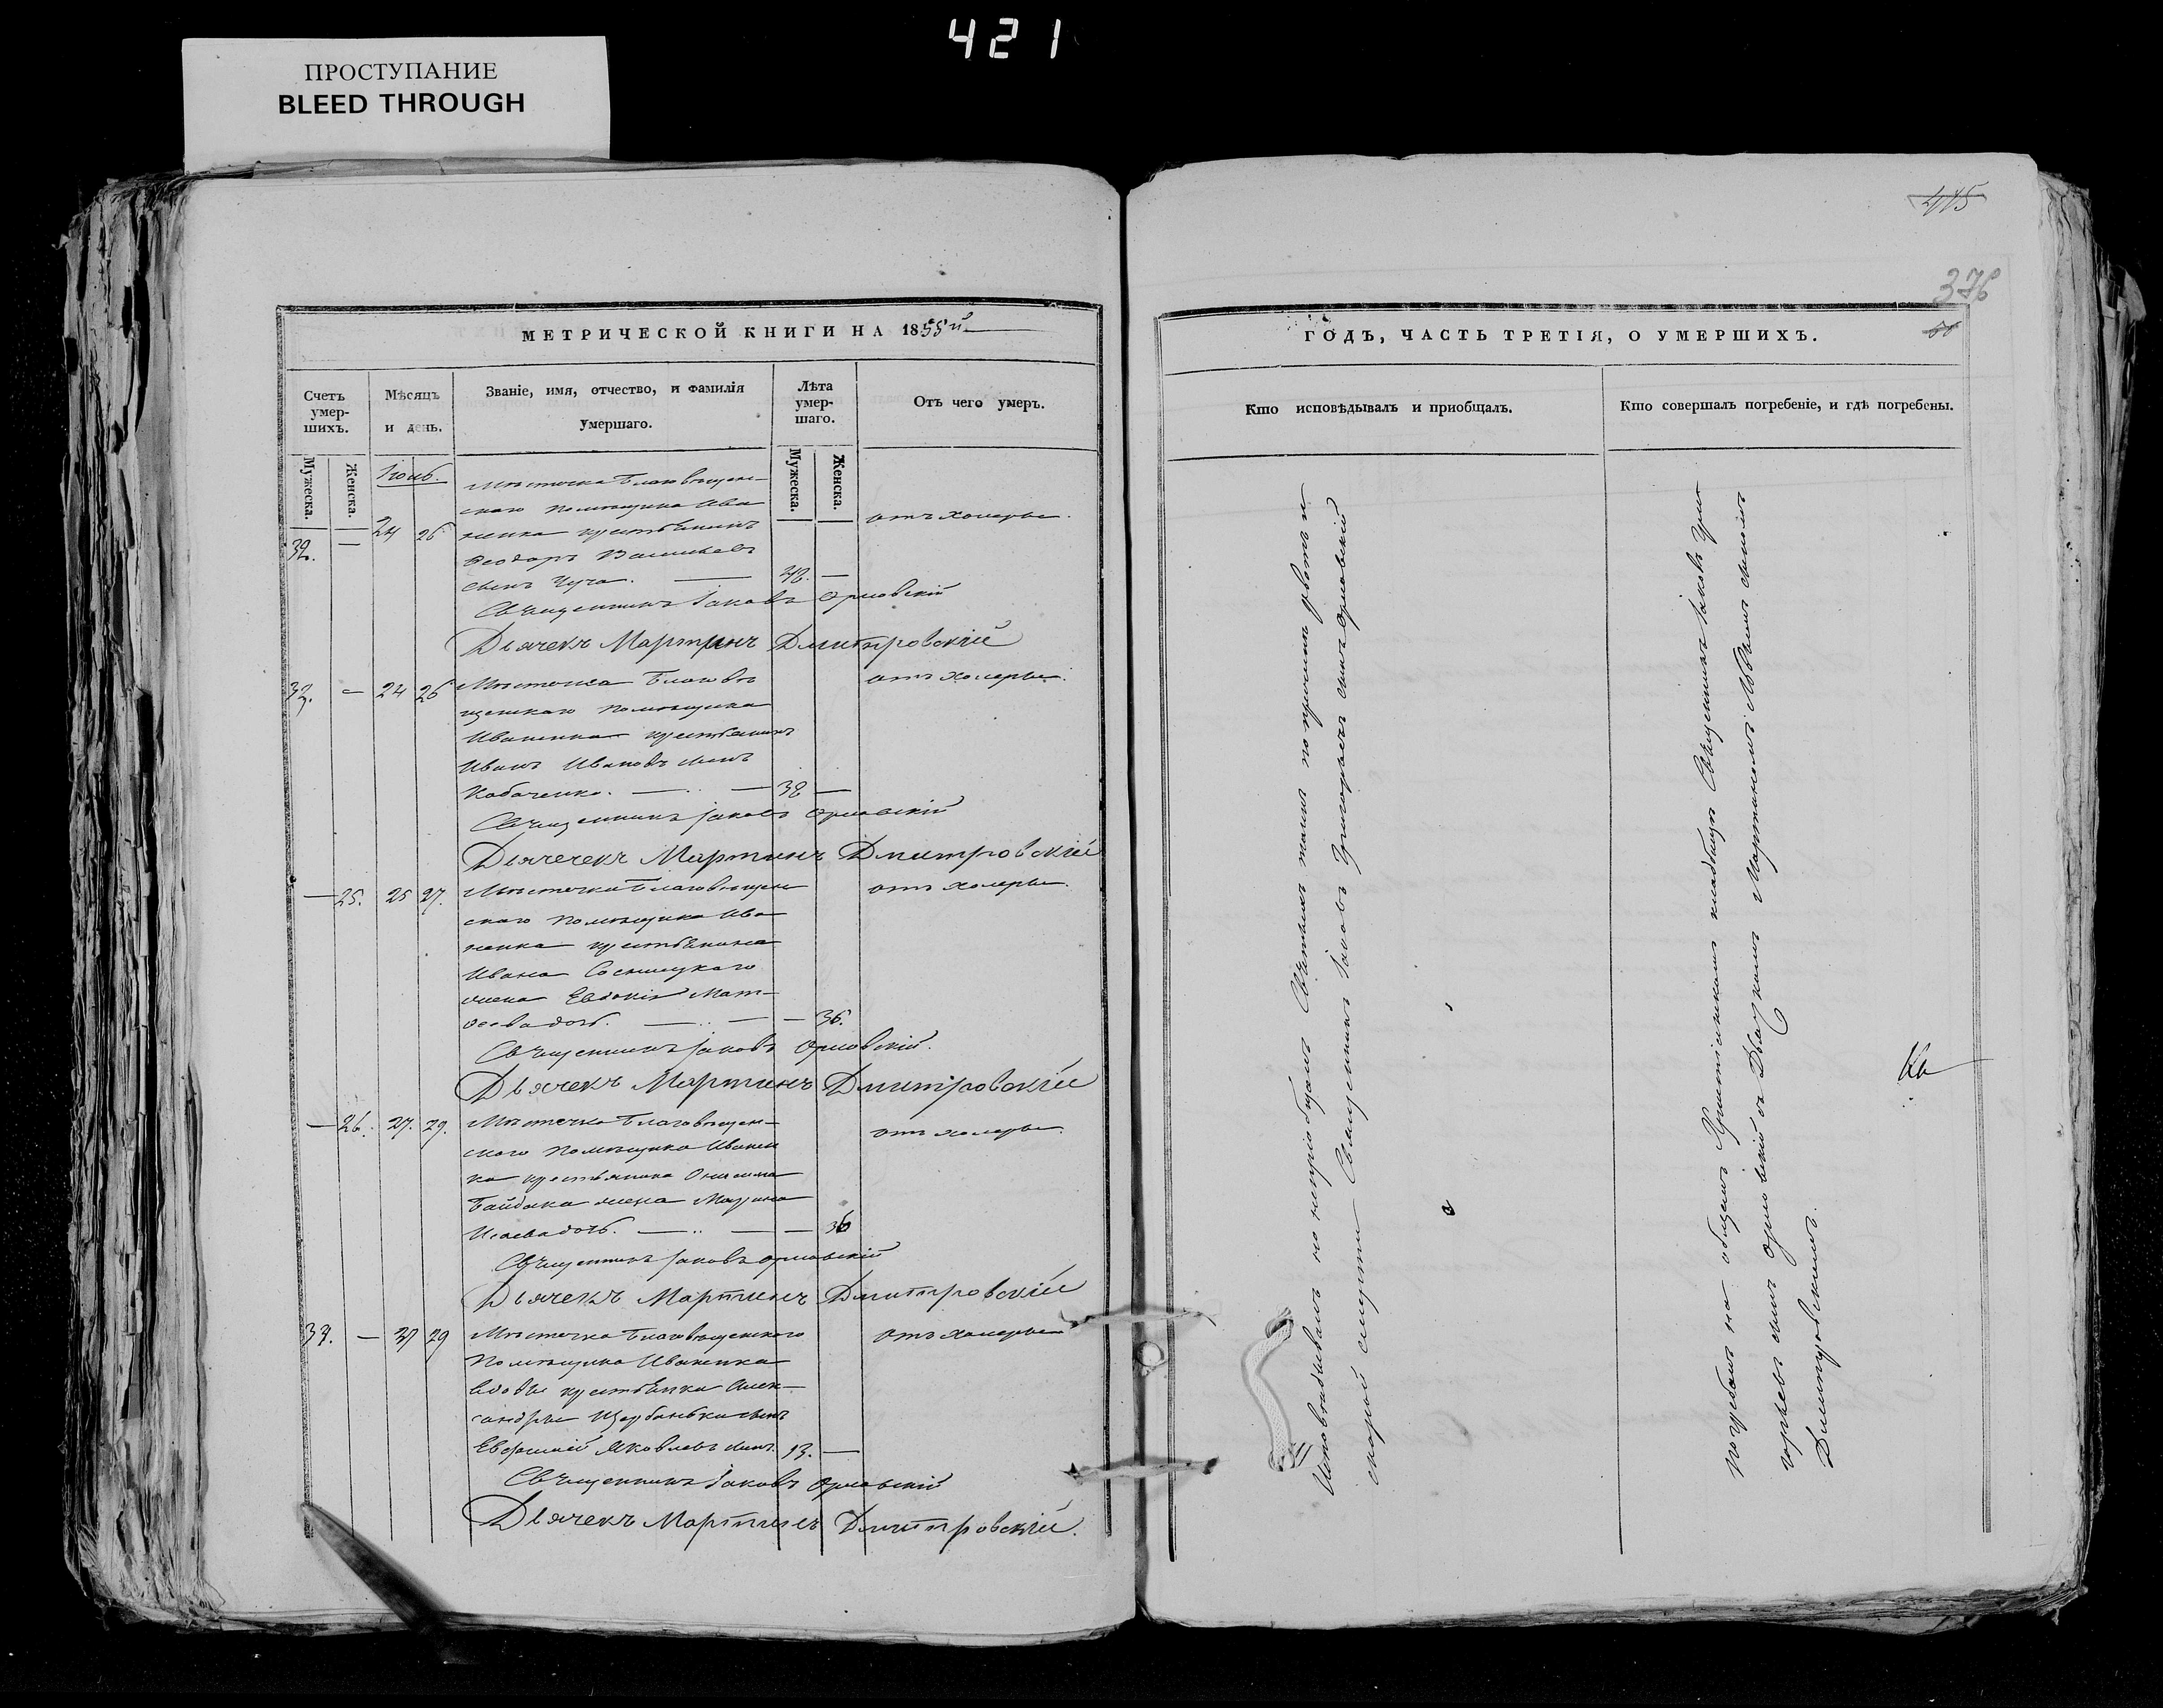 421
ПРОСТУПАНИЕ
BLEED THROUGH
МЕТРИЧЕСКОЙ КНИГИ НА 1855й
Счетъ умер-шихъ.
Мѣсяцъ и день.
Званіе, имя, отчество, и фамилія Умершаго.
Лѣта умер-шаго.
Отъ чего умеръ.
Мужеска.
Женска.
Мужеска.
Женска.
Іюнь.
Мѣстечка Благовѣщен-
скаго помѣщика Ива
32. — 24 26 ненка крестьянинъ отъ холеры.
Ѳеодоръ Васильевъ
сынъ —
Священникъ Іаковъ Орловскій
Дьячекъ Мартинъ Дмитровскій
— 24 26 Мѣстечка Благовѣ отъ холеры.
щенскаго помѣщика
Иваненка крестьянинъ
Иванъ Ивановъ сынъ
Кобаченко. — 38 —
Священникъ Іаковъ Орловскій
Дьячечекъ Мартинъ Дмитровскій
— 25. 25 27. Мѣстечка Благовѣщен отъ холеры.
скаго помѣщика Ива
ненка крестьянина
Ивана Сосницкаго
жена Евдокія Мат-
ѳеева дочь. — — 36.
Священникъ Іаковъ Орловскій.
Дьячекъ Мартинъ Дмитровскій
— 26. 27. 29. Мѣстечка Благовѣщен- отъ холеры.
скаго помѣщика Иванен
ка крестьянина Онисима
Байдака жена Марина
Исаева дочь. — — 36
Священникъ Іаковъ Орловскій
Дьячекъ Мартинъ Дмитровскій
33. — 27 29 Мѣстечка Благовѣщенскаго отъ холеры
помѣщика Иваненка
вдовы крестьянки Алек-
сандры сынъ
Евфимій Яковлевъ сынъ. 13. —
Священникъ Іаковъ Орловскій
Дьячекъ Мартинъ Дмитровскій.
415
376
ГОДЪ, ЧАСТЬ ТРЕТІЯ, О УМЕРШИХЪ.
Кто исповѣдывалъ и пріобщалъ.
Кто совершалъ погребеніе, и гдѣ погребены.
Исповѣдывалъ но непріобщалъ Святыхъ таинъ по причинѣ рвоты и
скорой смерти Священникъ Іаковъ Григорьевъ сынъ Орловскій
погребалъ на общемъ Христіанскомъ кладбищѣ Священникъ Іаковъ Гри
горьевъ сынъ Орловскій съ Дьячкомъ Мартиномъ сыномъ
Дмитровскимъ.